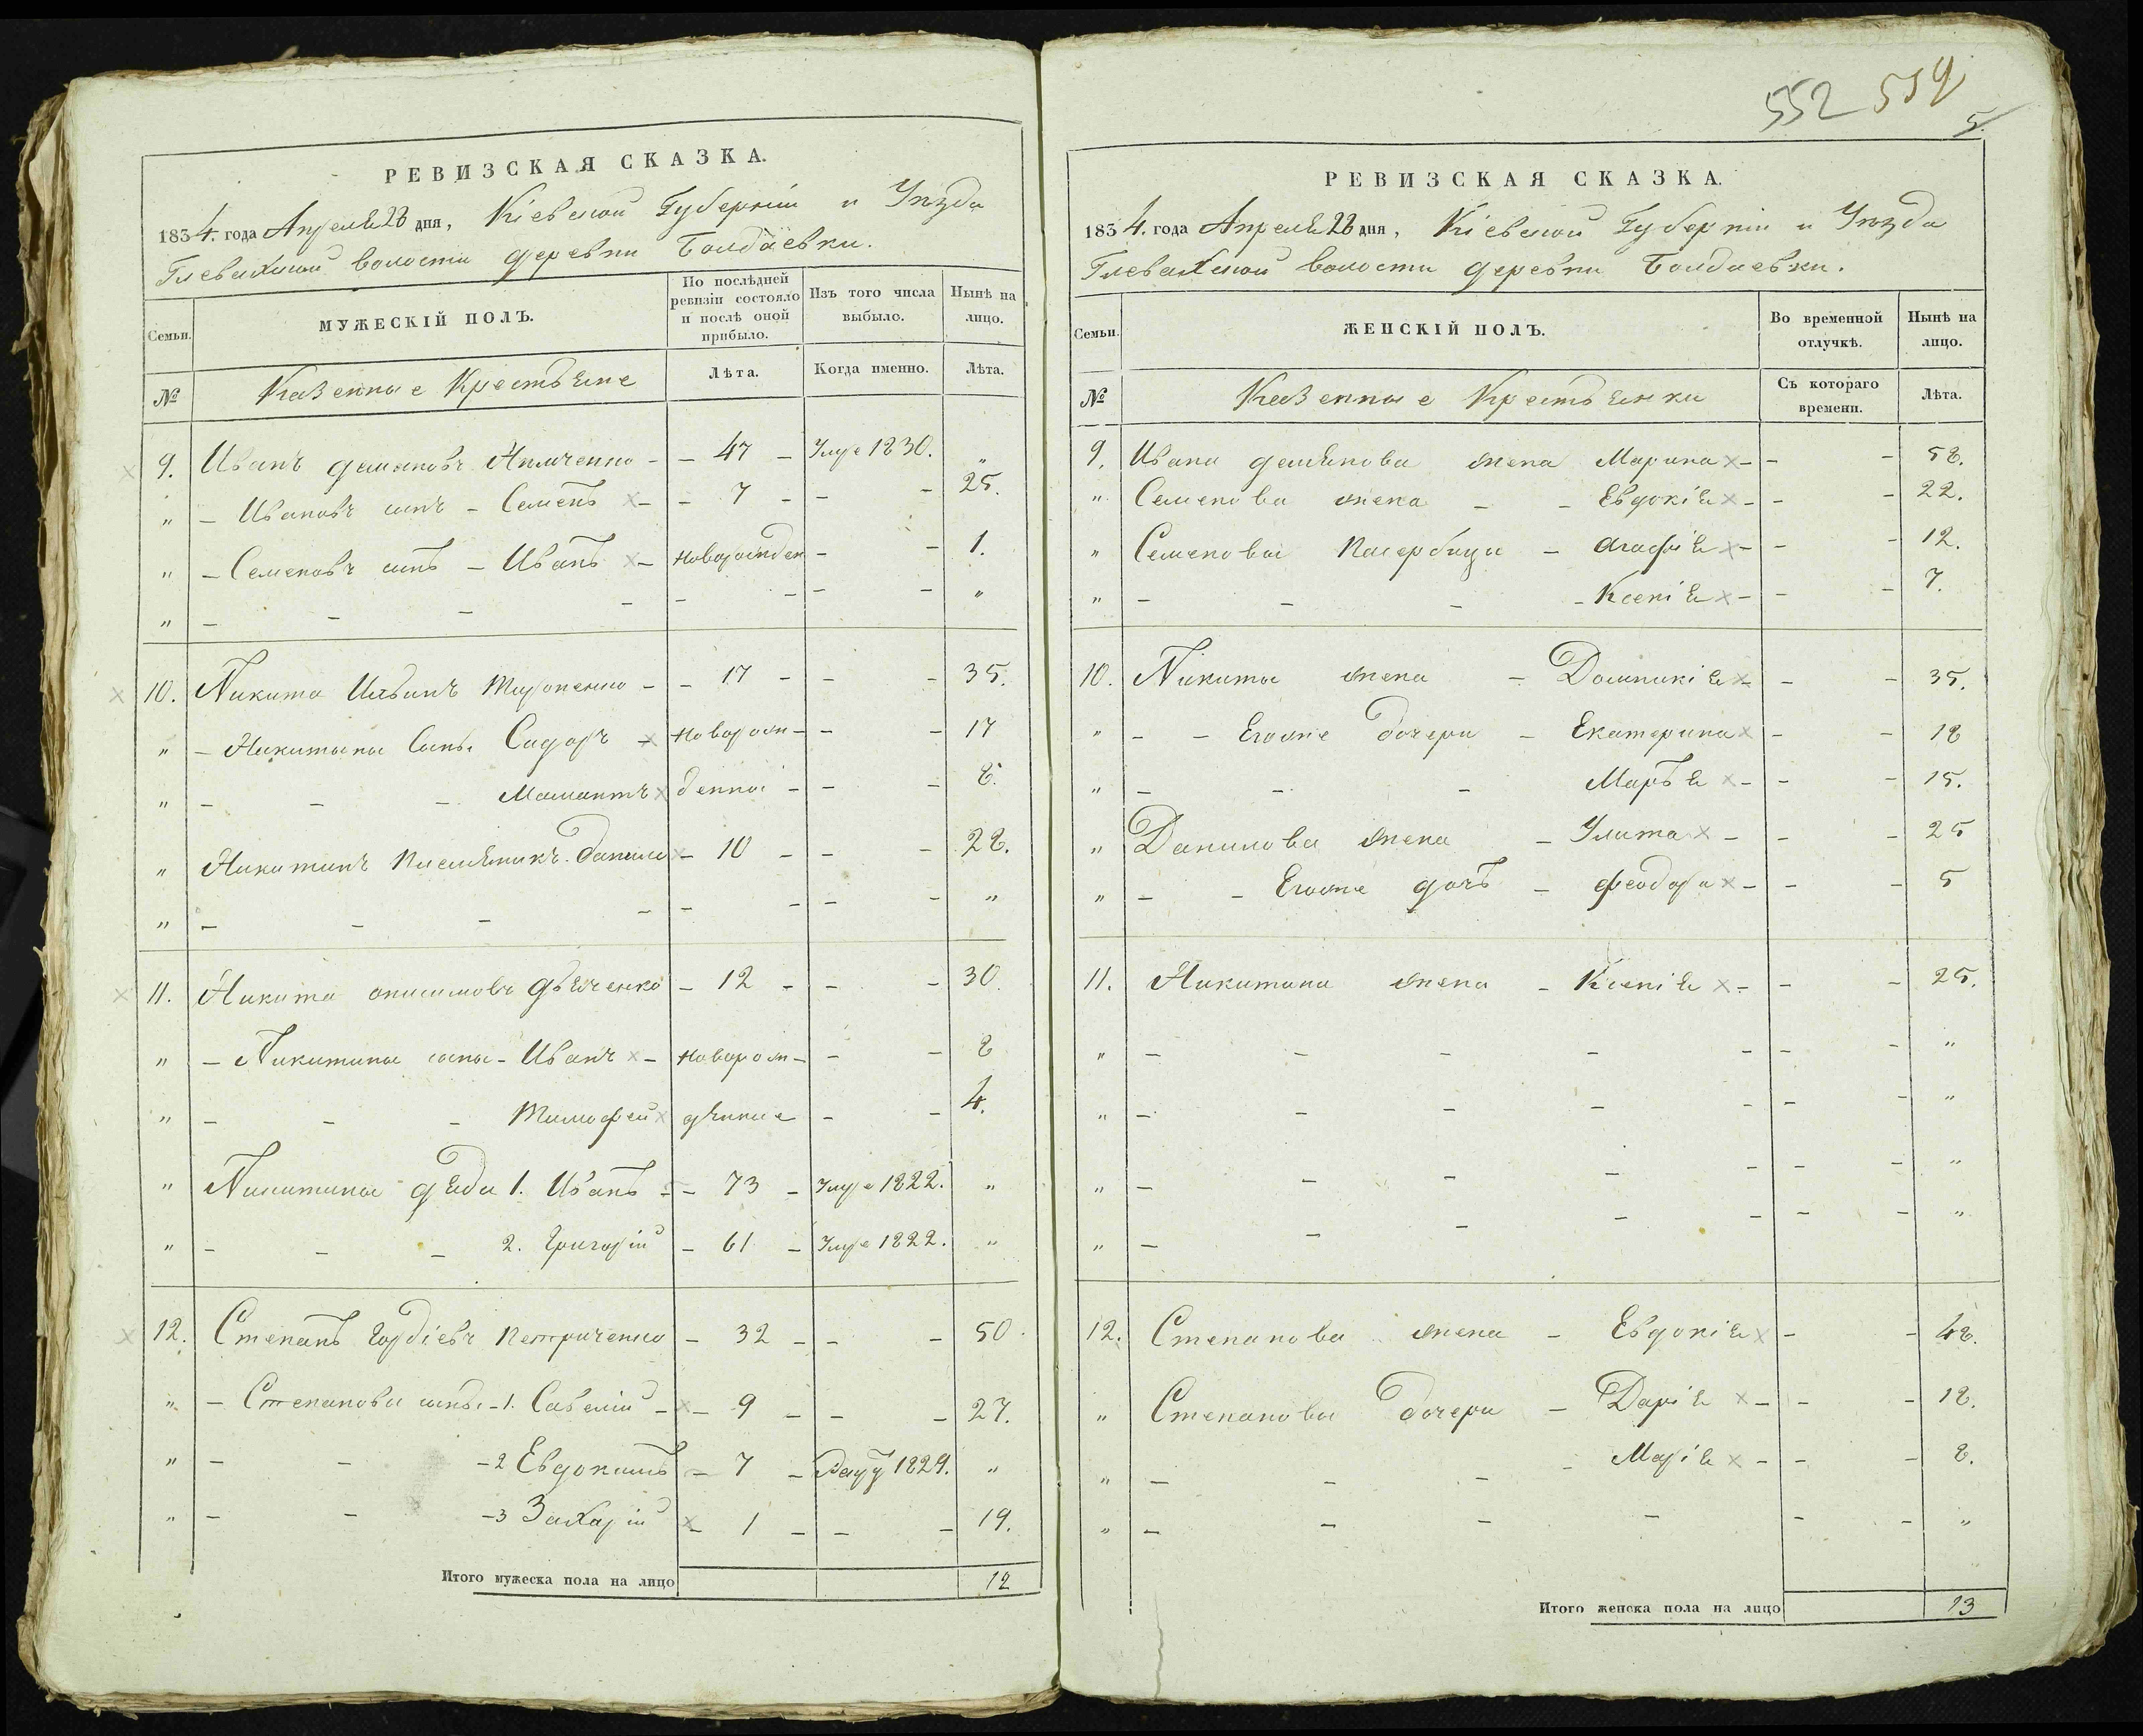 552 559
5.
РЕВИЗСКАЯ СКАЗКА.
1834. года Апреля 28 дня, Кіевской Губерніи и Уѣзда
Глевахской волости деревни Болдаевки.
Семьи. МУЖЕСКІЙ ПОЛЪ. По послѣдней ревизіи состояло и послѣ оной прибыло. Изъ того числа выбыло. Нынѣ на лицо.
№ Казенные Крестьяне Лѣта. Когда именно. Лѣта.
9. Иванъ демяновъ - - 47 - Умре 1830. „
„ - Ивановъ сынъ - Семенъ × - - 7 - - - 25.
„ - Семеновъ сынъ - Иванъ × - новорожден - - 1.
„ - - - - - - - - „
10. Никита Ильинъ - - 17 - - - 35.
„ - Никитины Сыны Сидоръ × новорож - - - 17
„ - - - Мамантъ × денныи - - - 8.
„ Никитинъ племянникъ Данило × - 10 - - - 28.
„ - - - - - - - - „
11. Никита онисимовъ дьяченко - 12 - - - 30.
„ - Никитины сыны - Иванъ × - новорож - - - 8
„ - - - Тимофей × дѣнние - - 4.
„ Никитины дяди 1. Иванъ - - 73 - Умре 1822. „
„ - - - 2. Григорій - 61 - Умре 1822. „
12. Степанъ Гордіевъ Петриченко - 32 - - - 50.
„ - Степановы сыны - 1. Савелій - × - 9 - - - 27.
„ - - - 2 Евдокимъ - 7 - 1829. „
„ - - - 3 Захарій × - 1 - - - 19.
Итого мужеска пола на лицо 12
РЕВИЗСКАЯ СКАЗКА.
1834. года Апреля 28 дня, Кіевской Губерніи и Уѣзда
Глевахской волости деревни Болдаевки.
Семьи. ЖЕНСКІЙ ПОЛЪ. Во временной отлучкѣ. Нынѣ на лицо.
№ Казенные Крестьянки Съ котораго времени. Лѣта.
9. Ивана демянова жена Марина × - - - 58.
„ Семенова жена - - Евдокія × - - - 22.
„ Семеновы Пасербицы - Агафія × - - - 12.
„ - - - - Ксенія × - - - 7.
10. Никиты жена - Домникія × - - - 35.
„ - - Егоже дочери - Екатерина × - - 18
„ - - - Марья × - - - 15.
„ Данилова жена - Улита × - - - 25
„ - - Егоже дочь - феодора × - - - 5
11. Никитина жена - Ксенія × - - - 25.
„ - - - - - - - „
„ - - - - - - - „
„ - - - - - - - „
„ - - - - - - - „
12. Степанова жена - Евдокія × - - 48.
„ Степановы дочери - Дарія × - - - 18.
„ - - - - Марія × - - - 8.
„ - - - - - - „
Итого женска пола на лицо 13